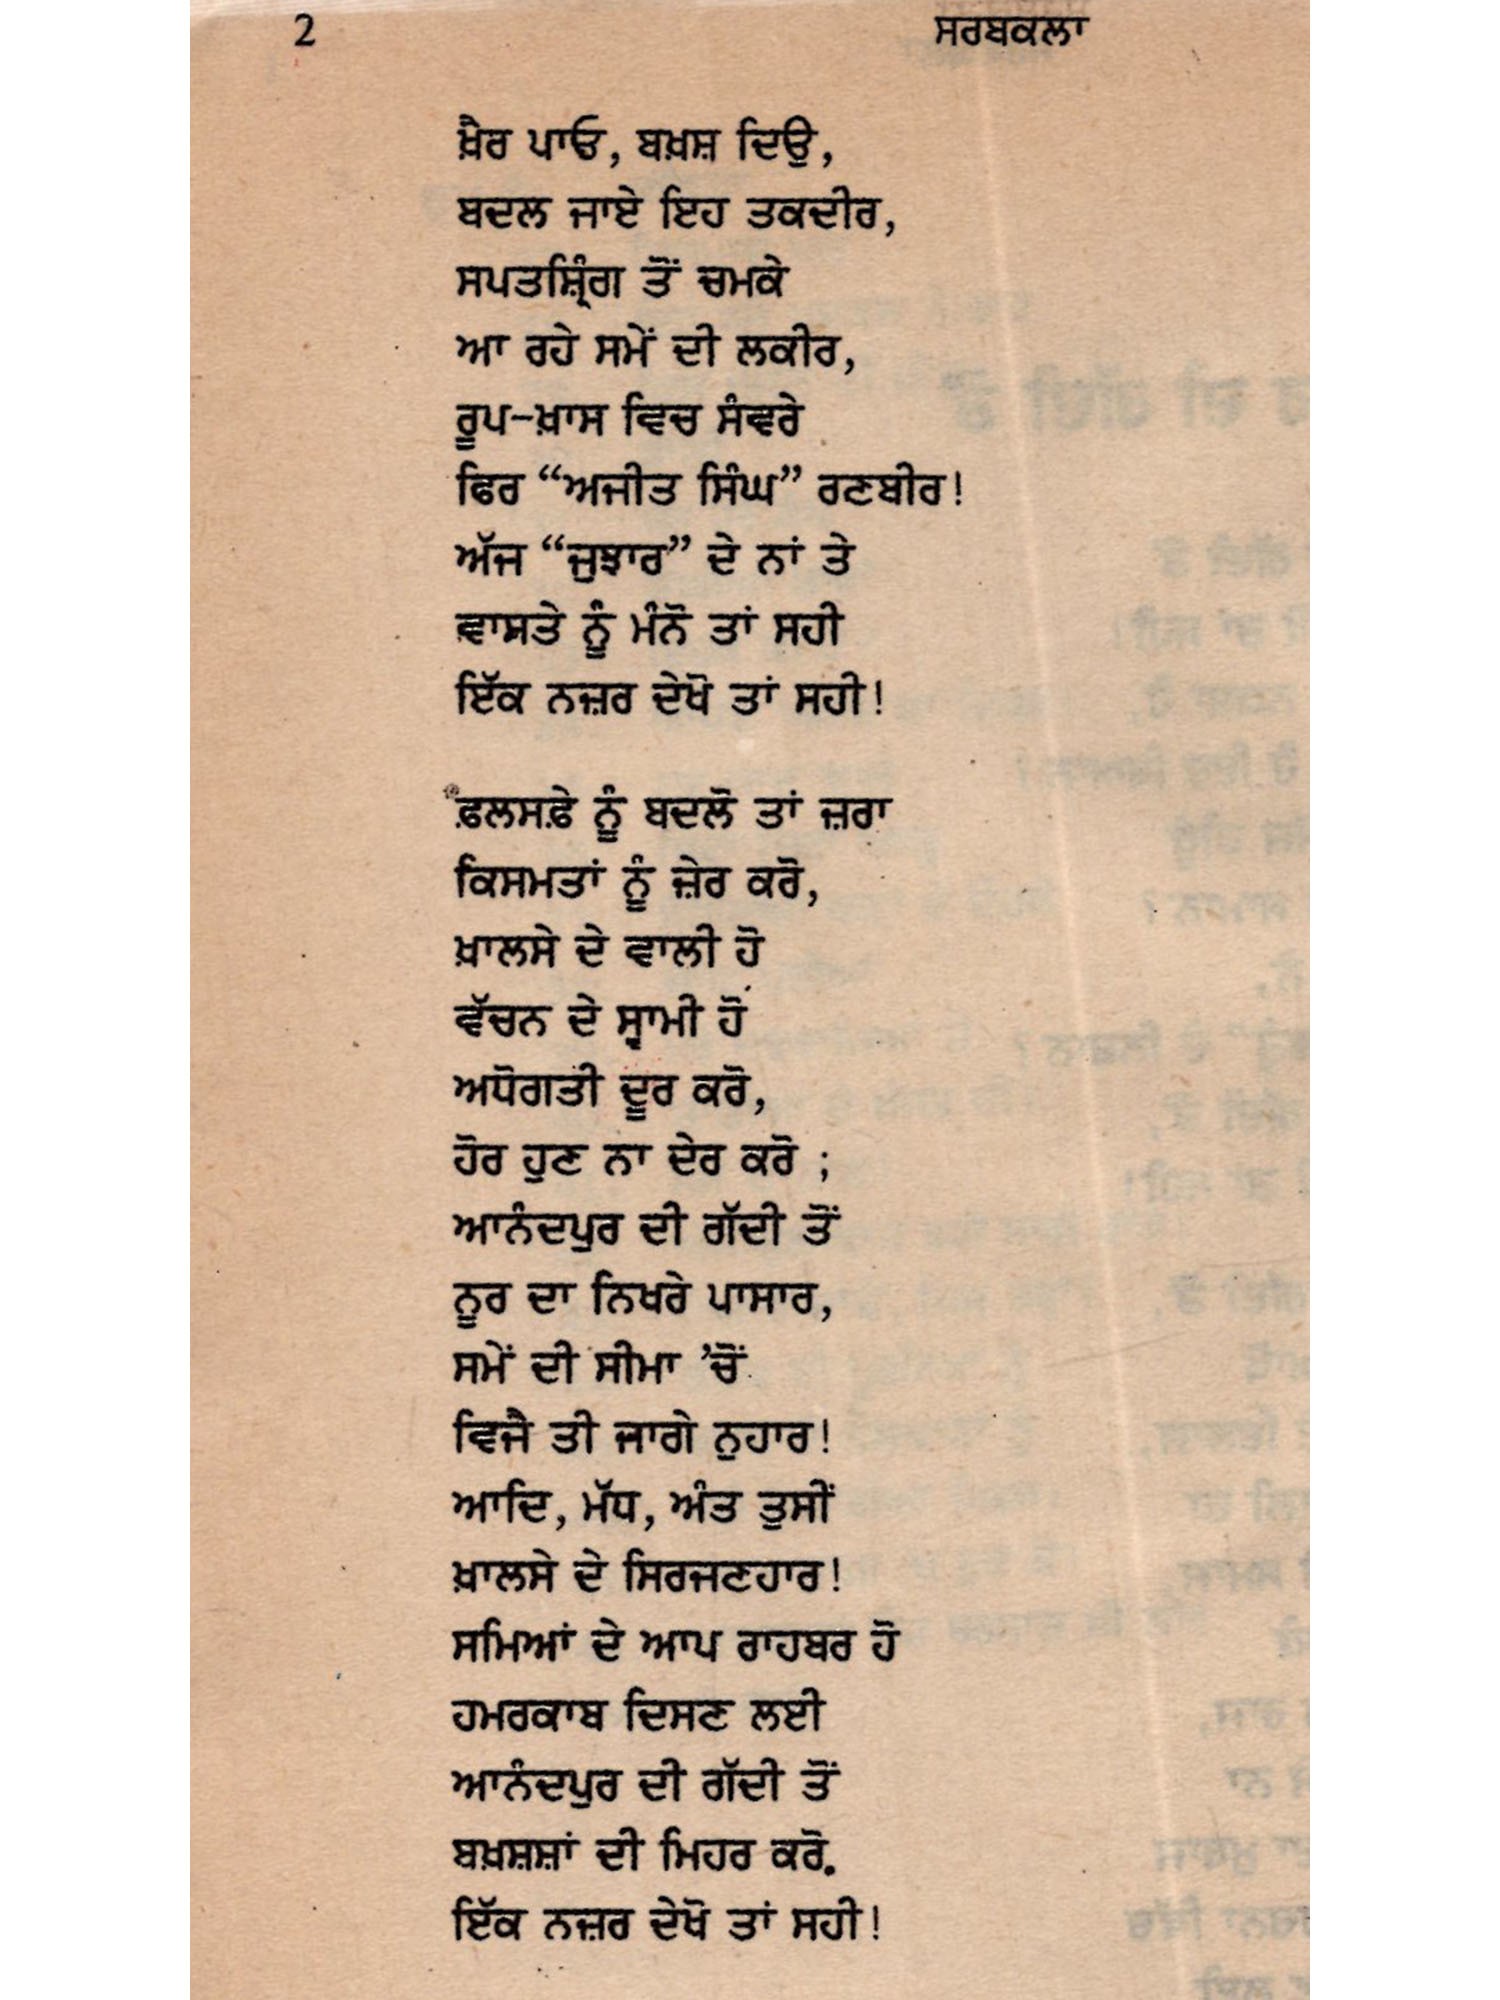 2 ਸਰਬਕਲਾ
ਖ਼ੈਰ ਪਾਓ, ਬਖ਼ਸ਼ ਦਿਉ,
ਬਦਲ ਜਾਏ ਇਹ ਤਕਦੀਰ,
ਸਪਤਸ਼੍ਰਿੰਗ ਤੋਂ ਚਮਕੇ
ਆ ਰਹੇ ਸਮੇਂ ਦੀ ਲਕੀਰ,
ਰੂਪ-ਖ਼ਾਸ ਵਿਚ ਸੰਵਰੇ
ਫਿਰ “ਅਜੀਤ ਸਿੰਘ” ਰਣਬੀਰ!
ਅੱਜ “ਜੁਝਾਰ” ਦੇ ਨਾਂ ਤੇ
ਵਾਸਤੇ ਨੂੰ ਮੰਨੋ ਤਾਂ ਸਹੀ
ਇੱਕ ਨਜ਼ਰ ਦੇਖੋ ਤਾਂ ਸਹੀ!
ਫ਼ਲਸਫ਼ੇ ਨੂੰ ਬਦਲੋ ਤਾਂ ਜ਼ਰਾ
ਕਿਸਮਤਾਂ ਨੂੰ ਜ਼ੇਰ ਕਰੋ,
ਖ਼ਾਲਸੇ ਦੇ ਵਾਲੀ ਹੋ
ਵੱਚਨ ਦੇ ਸ੍ਵਾਮੀ ਹੋ
ਅਧੋਗਤੀ ਦੂਰ ਕਰੋ,
ਹੋਰ ਹੁਣ ਨਾ ਦੇਰ ਕਰੋ ;
ਆਨੰਦਪੁਰ ਦੀ ਗੱਦੀ ਤੋਂ
ਨੂਰ ਦਾ ਨਿਖਰੇ ਪਾਸਾਰ,
ਸਮੇਂ ਦੀ ਸੀਮਾ ’ਚੋਂ
ਵਿਜੈ ਤੀ ਜਾਗੇ ਨੁਹਾਰ!
ਆਦਿ, ਮੱਧ, ਅੰਤ ਤੁਸੀਂ
ਖ਼ਾਲਸੇ ਦੇ ਸਿਰਜਣਹਾਰ!
ਸਮਿਆਂ ਦੇ ਆਪ ਰਾਹਬਰ ਹੋ
ਹਮਰਕਾਬ ਦਿਸਣ ਲਈ
ਆਨੰਦਪੁਰ ਦੀ ਗੱਦੀ ਤੋਂ
ਬਖ਼ਸ਼ਸ਼ਾਂ ਦੀ ਮਿਹਰ ਕਰੋ.
ਇੱਕ ਨਜ਼ਰ ਦੇਖੋ ਤਾਂ ਸਹੀ!